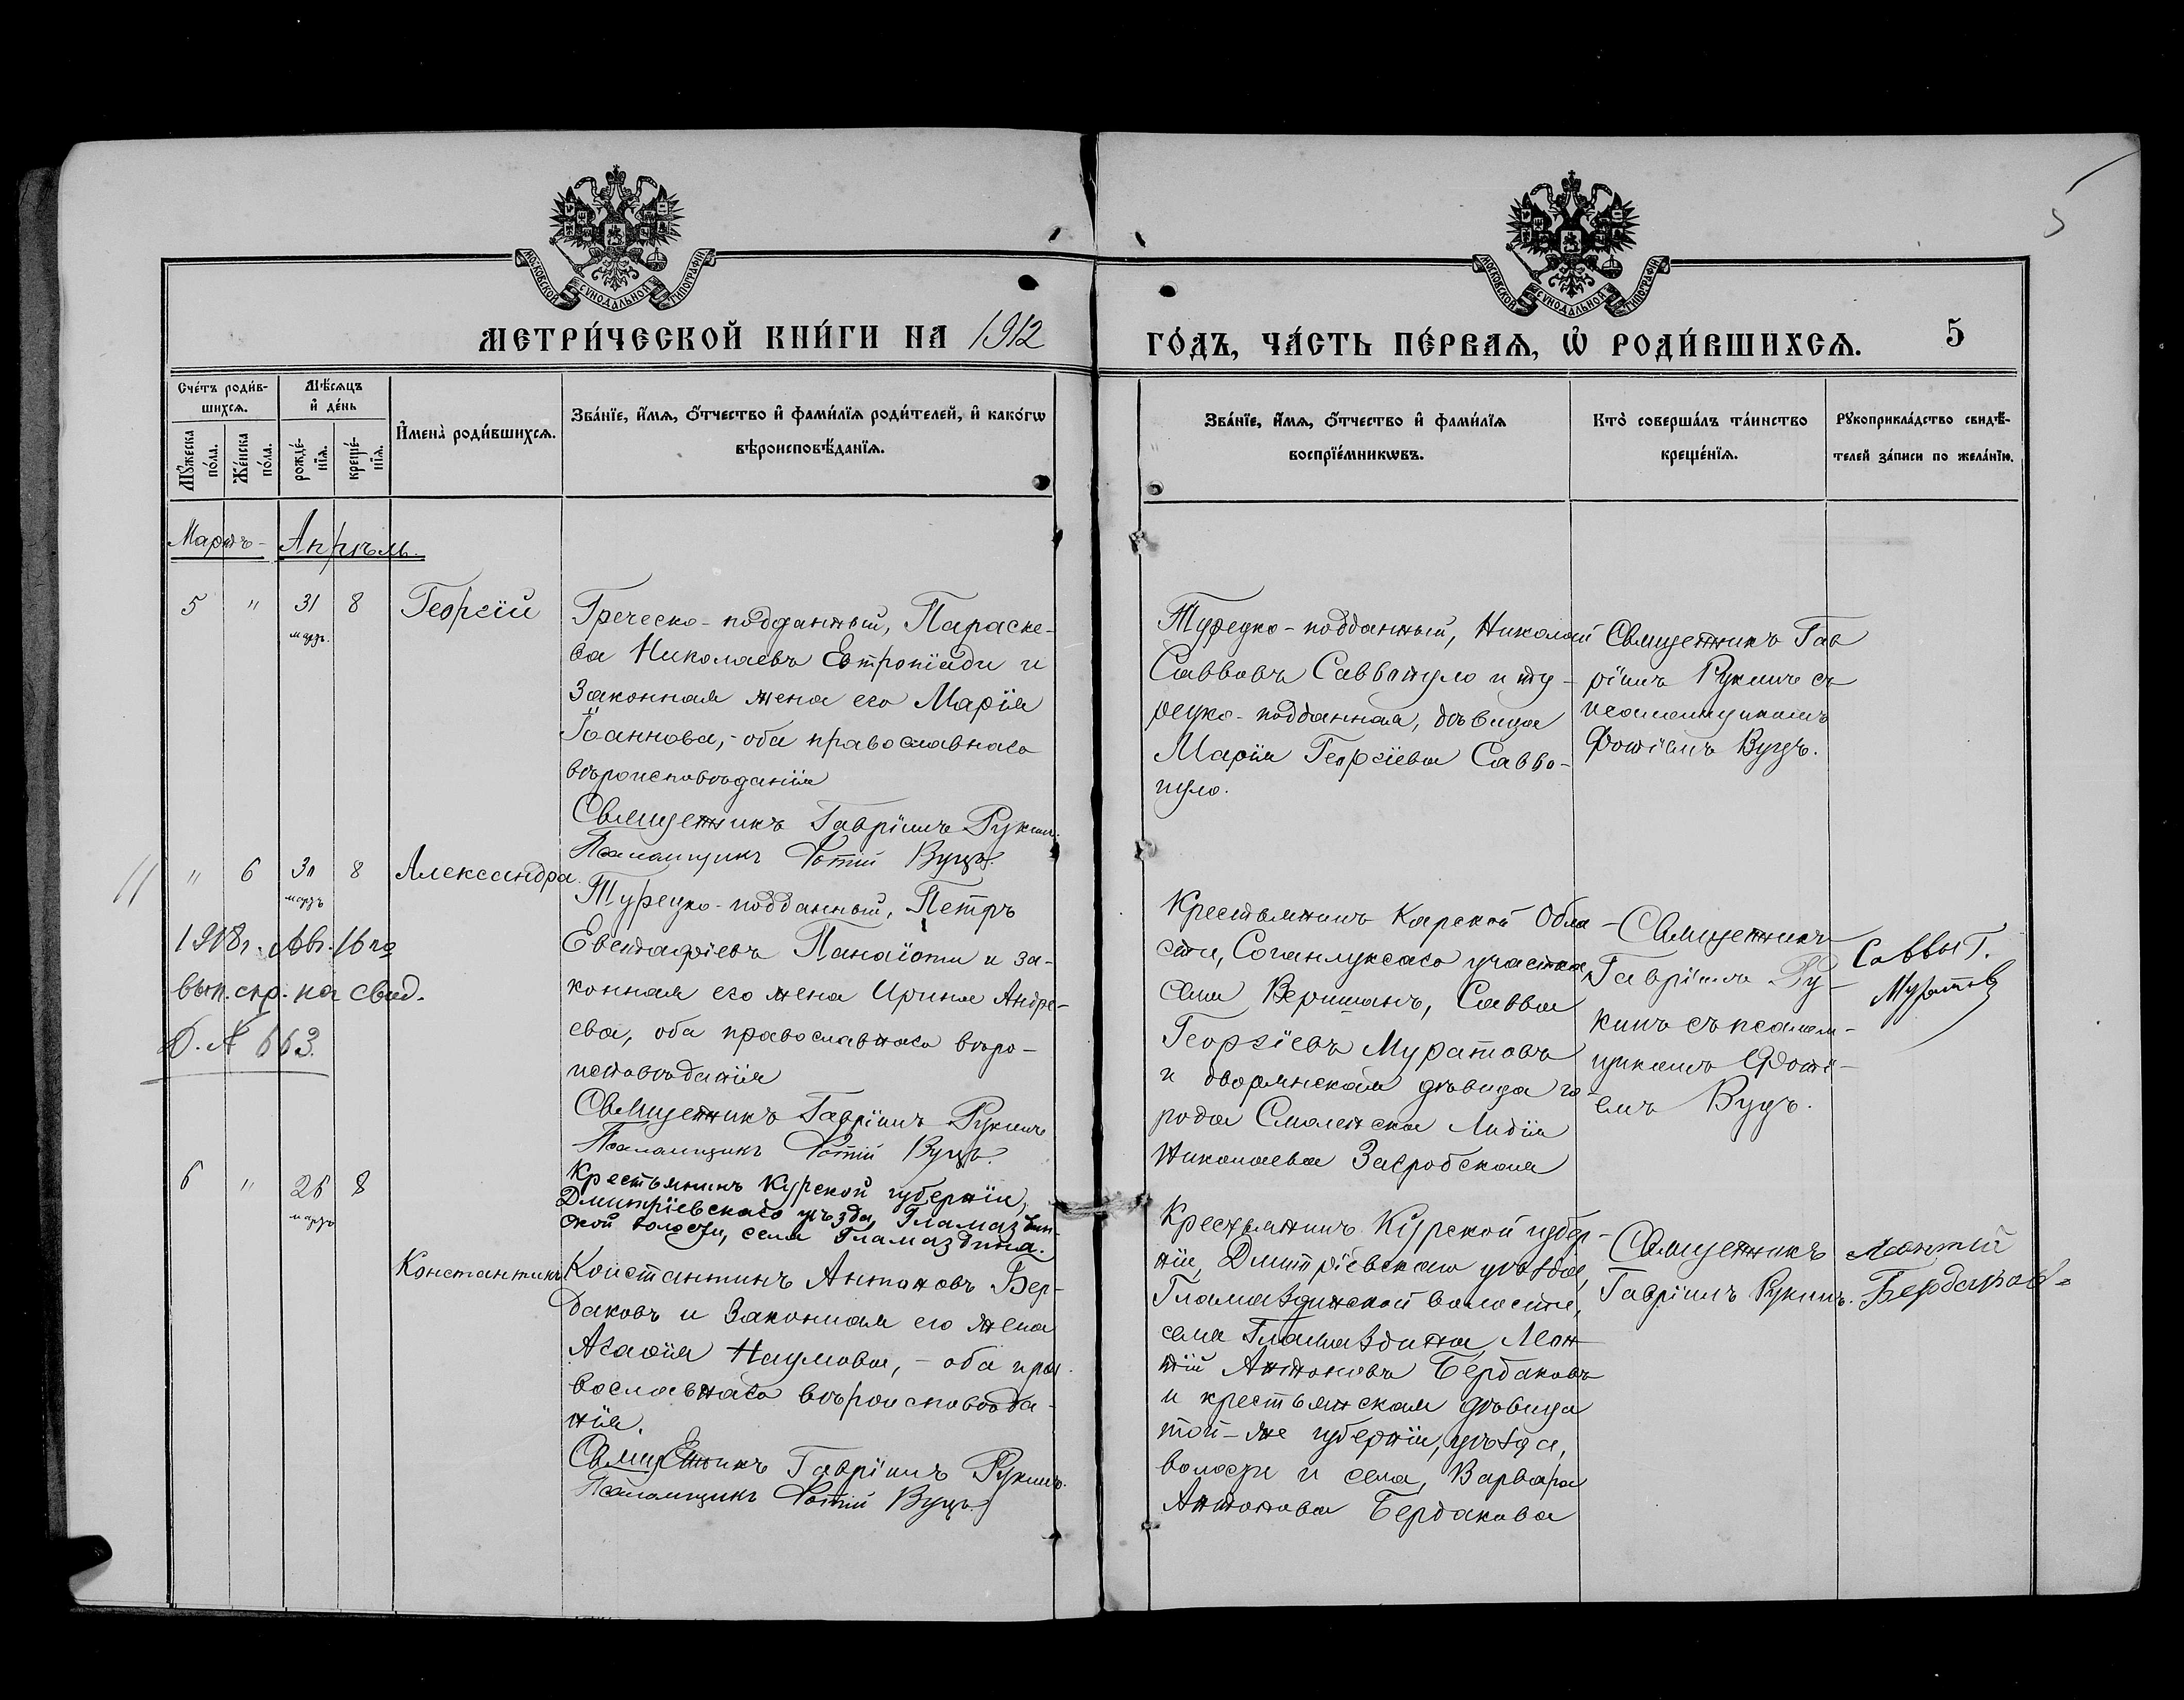 5
МОСКОВСКОЙ СѴНОДАЛЬНОЙ ТИПОГРАФІИ
МОСКОВСКОЙ СѴНОДАЛЬНОЙ ТИПОГРАФІИ
МЕТРИ́ЧЕСКОЙ КНИ́ГИ НА 1912
ГО́ДЪ, ЧА́СТЬ ПЕ́РВАѦ, Ѡ҆ РОДИ́ВШИХСѦ. 5
Сче́тъ роди́в-
шихсѧ.
Мꙋ́жеска по́ла.
Же́нска по́ла.
Мѣ́сѧцъ
и҆ де́нь
рожде́-
нїѧ.
креще́-
нїѧ.
И҆мена̀ роди́вшихсѧ.
Зва́нїе, и҆́мѧ, ѻ҆́тчество и҆ фами́лїѧ роди́телей, и҆ како́гѡ
вѣроисповѣ́данїѧ.
Зва́нїе, и҆́мѧ, ѻ҆́тчество и҆ фами́лїѧ
воспрїе́мникѡвъ.
Кто̀ соверша́лъ та́инство
креще́нїѧ.
Рꙋкоприкла́дство свидѣ́-
телей за́писи по жела́нїю.
Мартъ - Апрѣль.
5 " 31 8 Георгій
март.
Греческо-подданный, Параске-
ва Николаевъ Евтропіади и
законная жена его Марія
Іоаннова, - оба православнаго
вѣроисповѣданія
Священникъ Гавріилъ Рукинъ.
Псаломщикъ Фотій Вуцъ.
Турецко-подданный, Николай
Саввовъ Саввопуло и ту-
рецко-подданная, дѣвица
Марія Георгіева Савво-
пуло.
Священникъ Гав
ріилъ Рукинъ съ
псаломщикомъ
Фотіемъ Вуцъ.
" 6 30 8 Александра
мартъ
1918 г. Авг. 16 го
вып. спр. на свид.
Д. № 663.
Турецко-подданный, Петръ
Евстафіевъ Панаіоти и за-
конная его жена Ирина Андре-
ева, оба православнаго вѣро-
исповѣданія
Священникъ Гавріилъ Рукинъ
Псаломщикъ Фотій Вуцъ.
Крестьянинъ Карской Обла-
сти, Соганлукскаго участка,
села Веришанъ, Савва
Георгіевъ Муратовъ
и дворянская дѣвица го-
рода Смоленска Лидія
Николаева
Священникъ
Гавріилъ Ру-
кинъ съ псалом-
щикомъ Фоті-
емъ Вуцъ.
Саввы Г.
Муратовъ
6 " 26 8
мартъ
Константинъ
Крестьянинъ Курской губерніи,
Дмитріевскаго уѣзда, Гламаздин-
ской волости, села Гламаздина.
Константинъ Антоновъ Бер-
даковъ и законная его жена
Агафія Наумова, - оба пра-
вославнаго вѣроисповѣда-
нія.
Священникъ Гавріилъ Рукинъ.
Псаломщикъ Фотій Вуцъ.
Крестьянинъ Курской губер-
ніи, Дмитріевскаго уѣзда,
Гламаздинской волости,
села Гламаздина, Леон
тій Антоновъ Бердаковъ
и крестьянская дѣвица
той-же губерніи, уѣзда,
волости и села, Варвара
Антонова Бердакова
Священникъ
Гавріилъ Рукинъ.
Леонтій
Бердаков